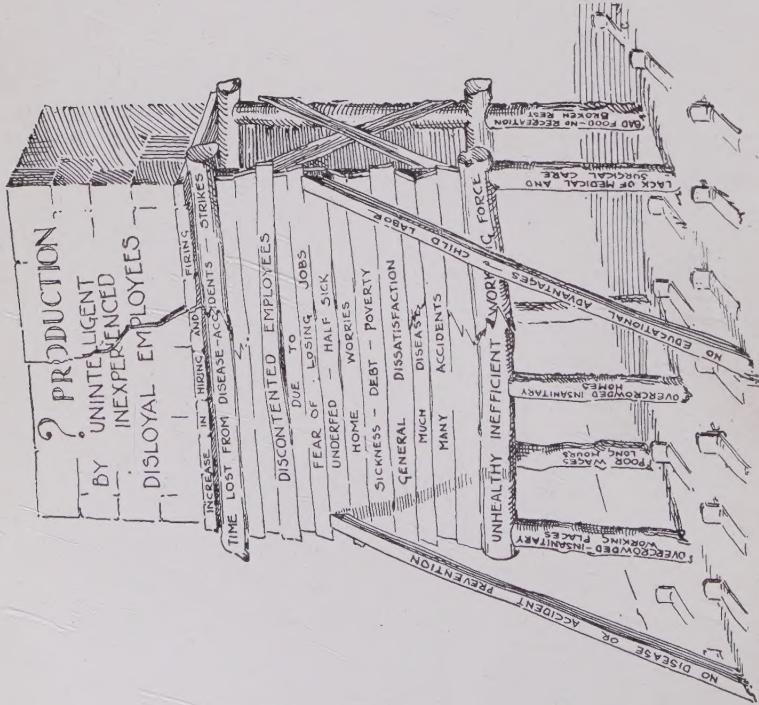 ? PRODUCTION
BY UNINTELLIGENT
INEXPERIENCED
DISLOYAL EMPLOYEES
INCREASE IN HIRING AND FIRING
TIME LOST FROM DISEASE-ACCIDENTS - STRIKES
DISCONTENTED EMPLOYEES
DUE TO
FEAR OF LOSING JOBS
UNDERFED - HALF SICK
HOME WORRIES
SICKNESS - DEBT - POVERTY
GENERAL DISSATISFACTION
MUCH DISEASE
MANY ACCIDENTS
UNHEALTHY INEFFICIENT WORKING FORCE
NO DISEASE OR ACCIDENT PREVENTION
NO EDUCATIONAL ADVANTAGES CHILD LABOR
OVERCROWDED-INSANITARY
WORKING PLACES
POOR WAGES
LONG HOURS
OVERCROWDED INSANITARY
HOMES
LACK OF MEDICAL AND
SURGICAL CARE
BAD FOOD-NO RECREATION
BROKEN REST